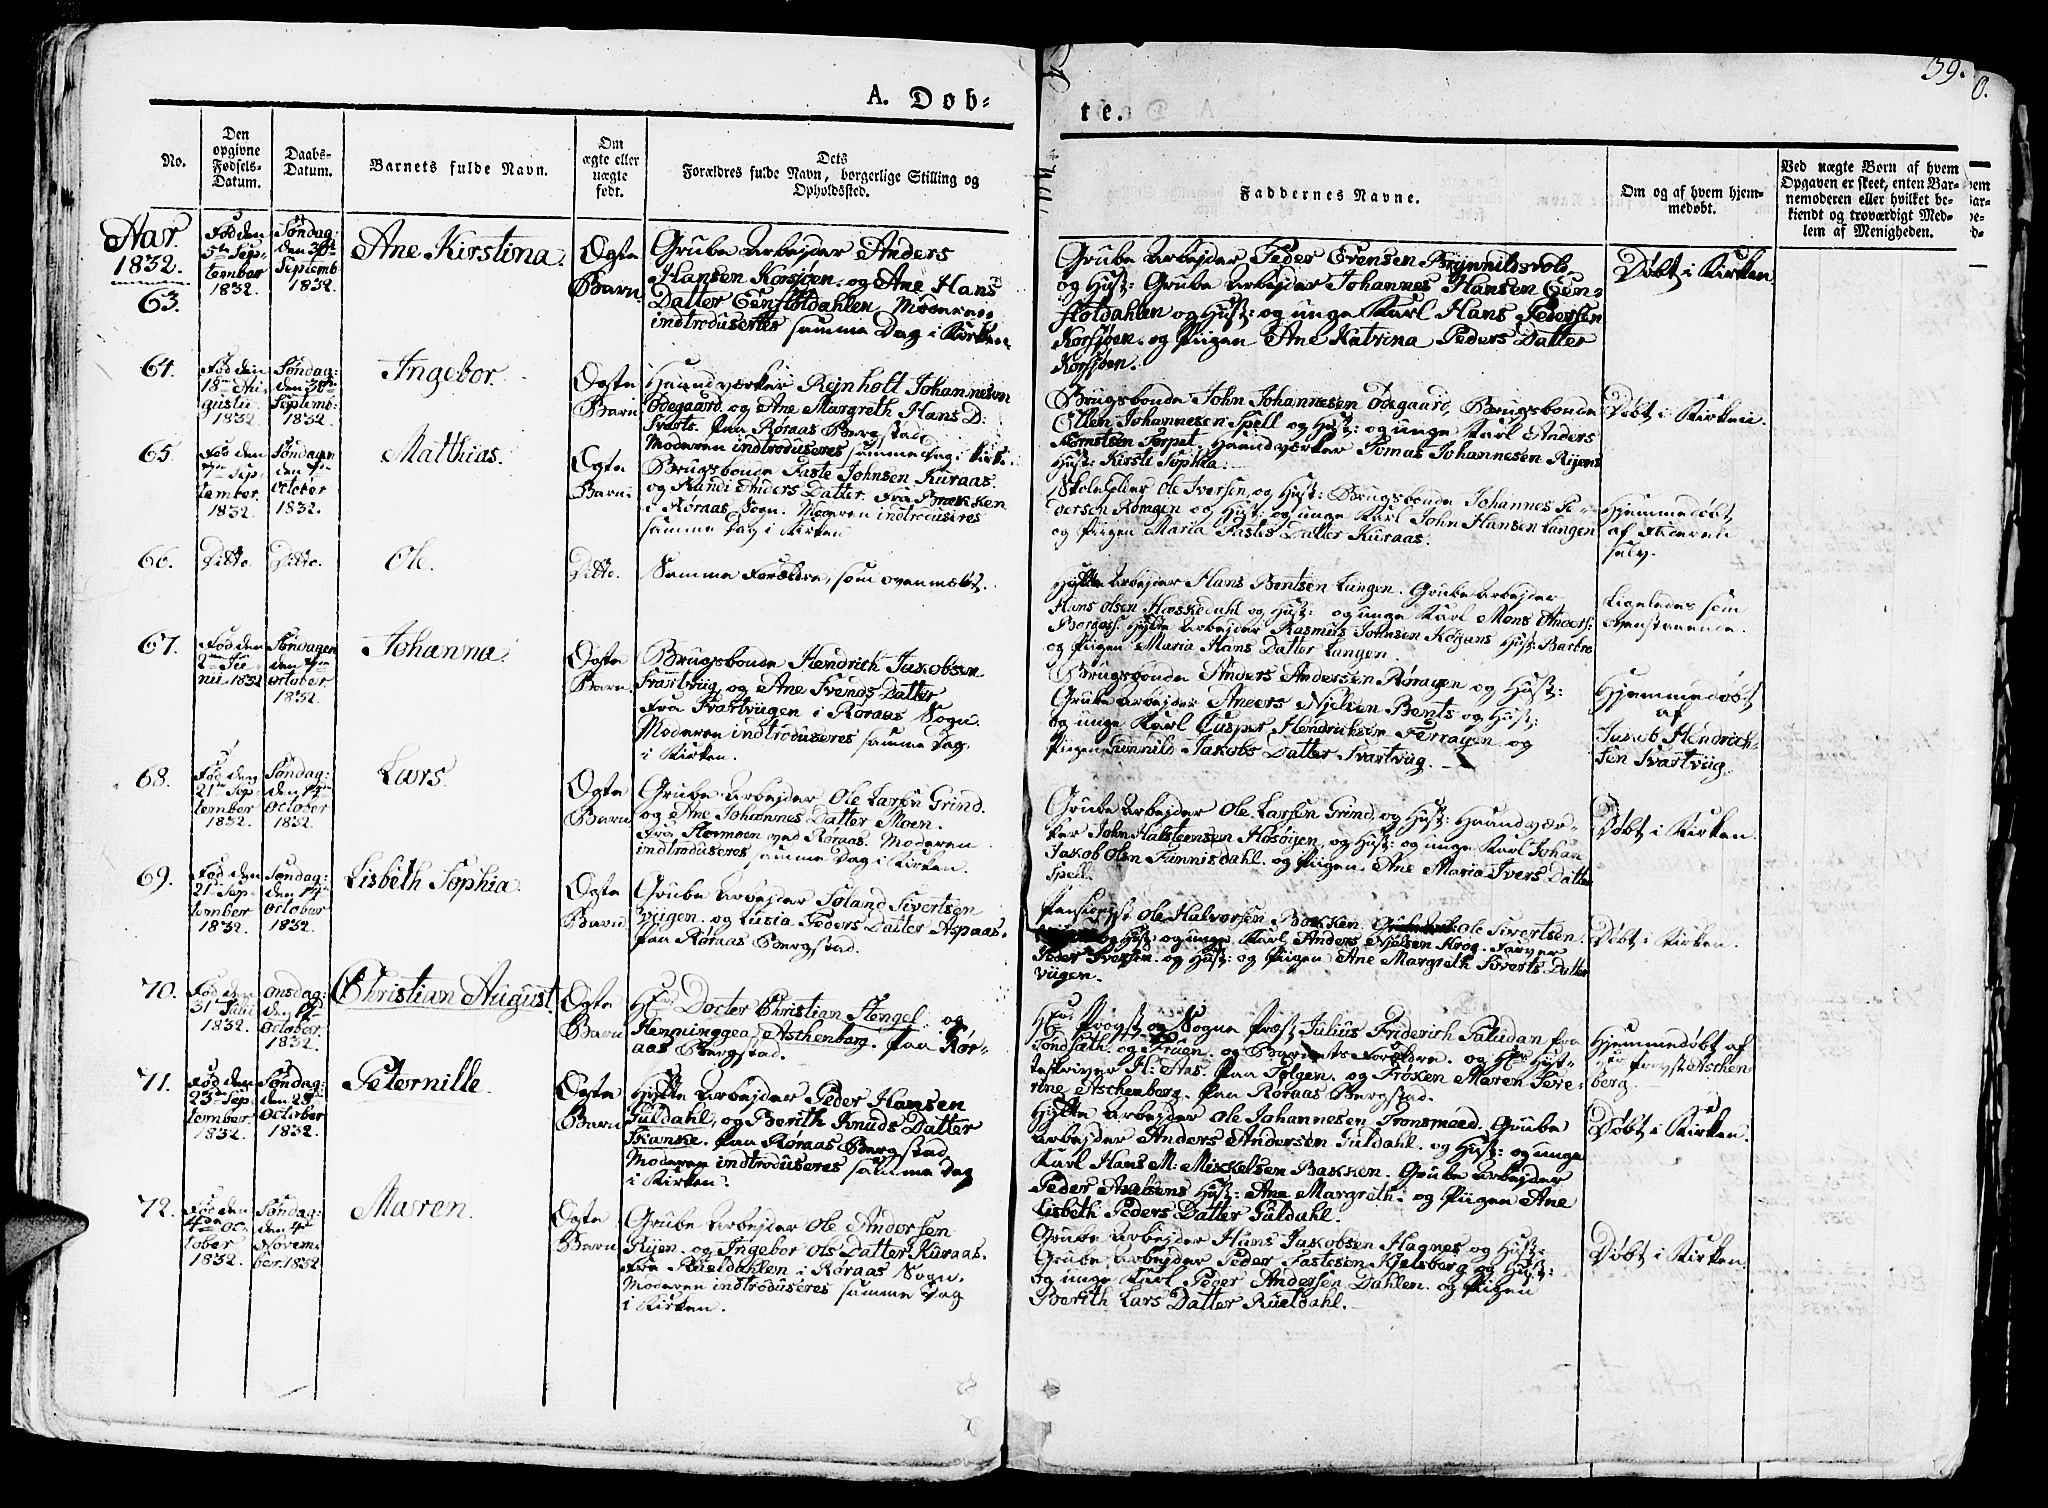 39.
A. Døb-
te.
No.
Den opgivne Fødsels-Datum.
Daabs-Datum.
Barnets fulde Navn.
Om ægte eller uægte født.
Dets Forældres fulde Navn, borgerlige Stilling og Opholdssted.
Faddernes Navne.
Om og af hvem hjem-
medøbt.
Ved uægte Børn af hvem
Opgaven er skeet, enten Bar-
nemoderen eller hvilket be-
kiendt og troværdigt Med-
lem af Menigheden.
Aar
1832.
63.
Fød den
5te Sep-
tember
1832.
Søndag
den 30te
Septemb
1832.
Ane Kirstina.
Ægte
Barn
Grube Arbejder Anders
Hansen Korsjøen. og Ane Hans
Datter Eenfoldahlen. Moderen
indtroduseres samme Dag i Kirken
Grube Arbejder Peder Evensen Brynnildsvold
og Hust: Grube Arbejder Johannes Hansen Een-
foldahlen og Hust: og unge Karl Hans Pedersen
Korsjøen. og Piigen Ane Katrina Peders Datter
Korsjøen.
Døbt i Kirken
64.
Fød den
18de Au-
gustii
1832.
Søndag:
den 30te
Septemb:
1832.
Ingebor.
Ægte
Barn
Haandværker Rejnholt Johannesen
Ødegaard, og Ane Margreth Hans D:
Svarts. paa Røraas Bergstad.
Moderen indtroduseres samme Dag i Kirke.
Brugsbonde John Johannesen Ødegaard, Brugsbonde
Ellen Johannesen Spell og Hust: og unge Karl Anders
Torpet. Haandværker Tomas Johannesen Rijens
Hust: Kirste Sophia.
Døbt i Kirken.
65.
Fød den
7de Sep-
tember.
1832.
Søndagen
den 7de
October
1832.
Matthias.
Ægte
Barn:
Brugsbonde Faste Johnsen Kuraas.
og Randi Anders Datter. fra Brækken
i Røraas Sogn. Moderen indtroduseres
samme Dag i Kirken
Skoleholder Ole Iversen, og Hust: Brugsbonde Johannes Pe-
dersen Rømgen og Hust: og unge Karl John Hansen Langen
og Piigen Maria Fastes Datter Kuraas.
Hjemmedøbt
af Faderen
selv.
66.
Ditto.
Ditto.
Ole.
Ditto.
Samme Forældre, som ovenmælt.
Hytte Arbejder Hans Bentsen Langen. Grube Arbejder
Hans Olsen Hæskedahl og Hust: og unge Karl Mons Anders:
Borgaas. Hytte Arbejder Rasmus Johnsen Kojans Hust: Barbro
og Piigen Maria Hans Datter Langen.
Ligeledes som
ovenstaaende.
67.
Fød den
2den Ju-
nii 1832
Søndagen
den 7de
October
1832.
Johanna.
Ægte
Barn
Brugsbonde Hendrich Jakobsen
Svartviig, og Ane Svends Datter
fra Svartviigen i Røraas Sogn.
Moderen indtroduseres samme Dag,
i Kirken.
Brugsbonde Anders Andersen Røragen og Hust:
Grube Arbejder Aneers Nielsen Bents og Hust:
og unge Karl Casper Hendriksen Ferragen, og
Piigen Gunnild Jakobs Datter Svartviig.
Hjemmedøbt
af
Jacob Hendrich-
sen Svartviig.
68.
Fød den
21de Sep-
tember
1832.
Søndag:
den 14de
October
1832.
Lars
Ægte
Barn
Grube Arbejder Ole Larsen Grind.
og Ane Johannes Datter Moen.
fra Hovmoen ved Røraas. Moderen
indtroduseres samme Dag i Kirken.
Grube Arbejder Ole Larsen Grind og Hust: Haandvær-
ker John Halsteensen Høsøijen, og Hust: og unge Karl Johan
Jakob Olsen Finnisdahl. og Piigen. Ane Maria Ivers Datter
Spell.
Døbt i Kirken.
69.
Fød den
21de Sep-
tember
1832.
Søndag:
den 14de
October
1832.
Lisbeth Sophia.
Ægte
Barn
Grube Arbejder Joland Sivertsen
Viigen. og Lusia Peders Datter Aspaas.
paa Røraas Bergstad.
Pensionist Ole Halvorsen Bakken. Ole Sivertsen
og Hust: og unge Karl Anders Nielsen Krog. Farver
Peder Iversen. og Hust: og Piigen Ane Margreth Siverts Datter
Viigen.
Døbt i Kirken.
70.
Fød den
31 Julii
1832.
Onsdag:
den 17de
October.
1832.
Christian August
Ægte
Barn
Hr. Docter Christian Stengel. og
Henninggea Aschenberg. Paa Rør-
aas Bergstad.
Hr. Provst og Sogne Præst Julius Friderich Paludan fra
og Fruen. og Barnets Forældre. og Hr. Hyt-
teskriver H: Aas. paa Tolgen. og Frøken Maren Seve-
rine Aschenberg. paa Røraas Bergstad.
Hjemmedøbt af
Hr Provst Aschen
berg.
71.
Fød den
23de Sep-
tember
1832.
Søndag:
den 28de
October
1832.
Peternille.
Ægte
Barn
Hytte Arbejder Peder Hansen
Guldahl, og Berith Knuds Datter
Skanke. paa Røraas Bergstad,
Moderen indtroduseres samme Dag
i Kirken.
Hytte Arbejder Ole Johannesen Tronsmoed. Grube
Arbejder Anders Andersen Guldahl. og Hust: og unge
Karl Hans M: Mikkelsen Bakken. Grube Arbejder
Peder Axelsens Hust: Ane Margreth. og Piigen Ane
Lisbeth Peders Datter Guldahl.
Døbt i Kirken.
72.
Fød den
4de Oc-
tober
1832.
Søndag:
den 4de
Novem-
ber. 1832
Maren.
Ægte
Barn
Grube Arbejder Ole Andersen
Rijen. og Ingebor Ols Datter Kuraas.
fra Rueldahlen i Røraas Sogn.
Moderen indtroduseres samme Dag
i Kirken.
Grube Arbejder Hans Jakobsen Hagnes og Hust:
Grube Arbejder Peder Fastesen Kjelsberg og Hust:
og unge Karl Peder Andersen Dahlen. og Piigen
Berith Lars Datter Rueldahl.
Døbt i Kirken